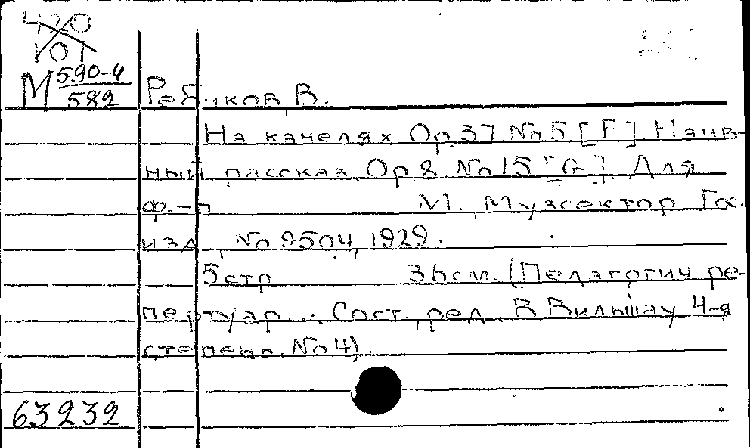 420
101
М 590-4
582
Ребиков В.
На качелях Op.37 No5 [F] Наив-
ный рассказ Op 8 No15 [G] Для
ф.-п М. Музсектор Гос.
изд., No 9504, 1929.
5 стр 36 см. (Педагогич ре-
пертуар. Сост. ред. В Вильшау 4-я
степень. No4)
63232